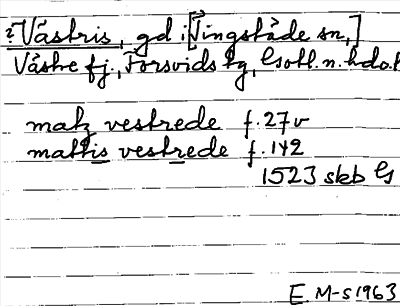 Västris, gd i [Tingstäde sn,]
Västre fj., Forsvids tg, Gotl. n. hd o. l
matz vestrede f. 27v
mattis vestrede f. 142
1523 skb Gs
E. M-s 1963